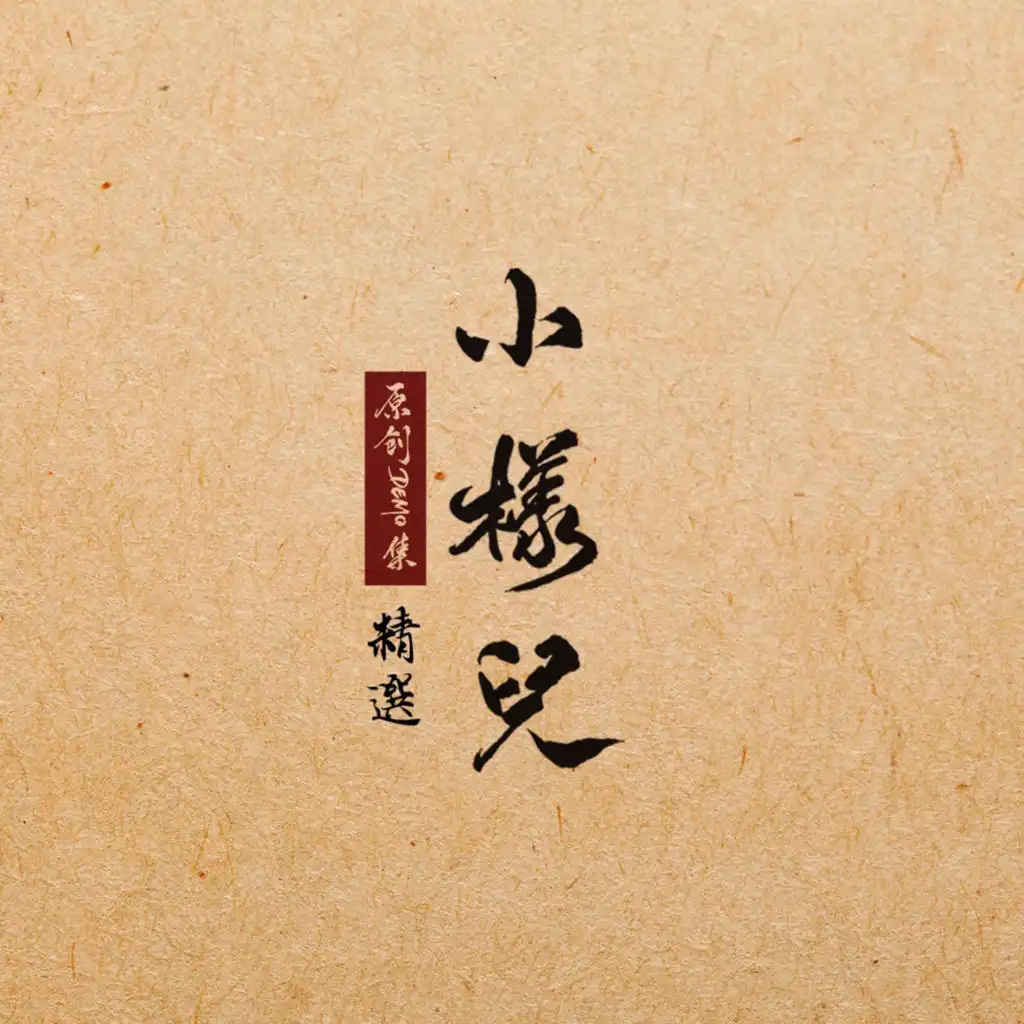 小樣兒
原创DeMo集
精選